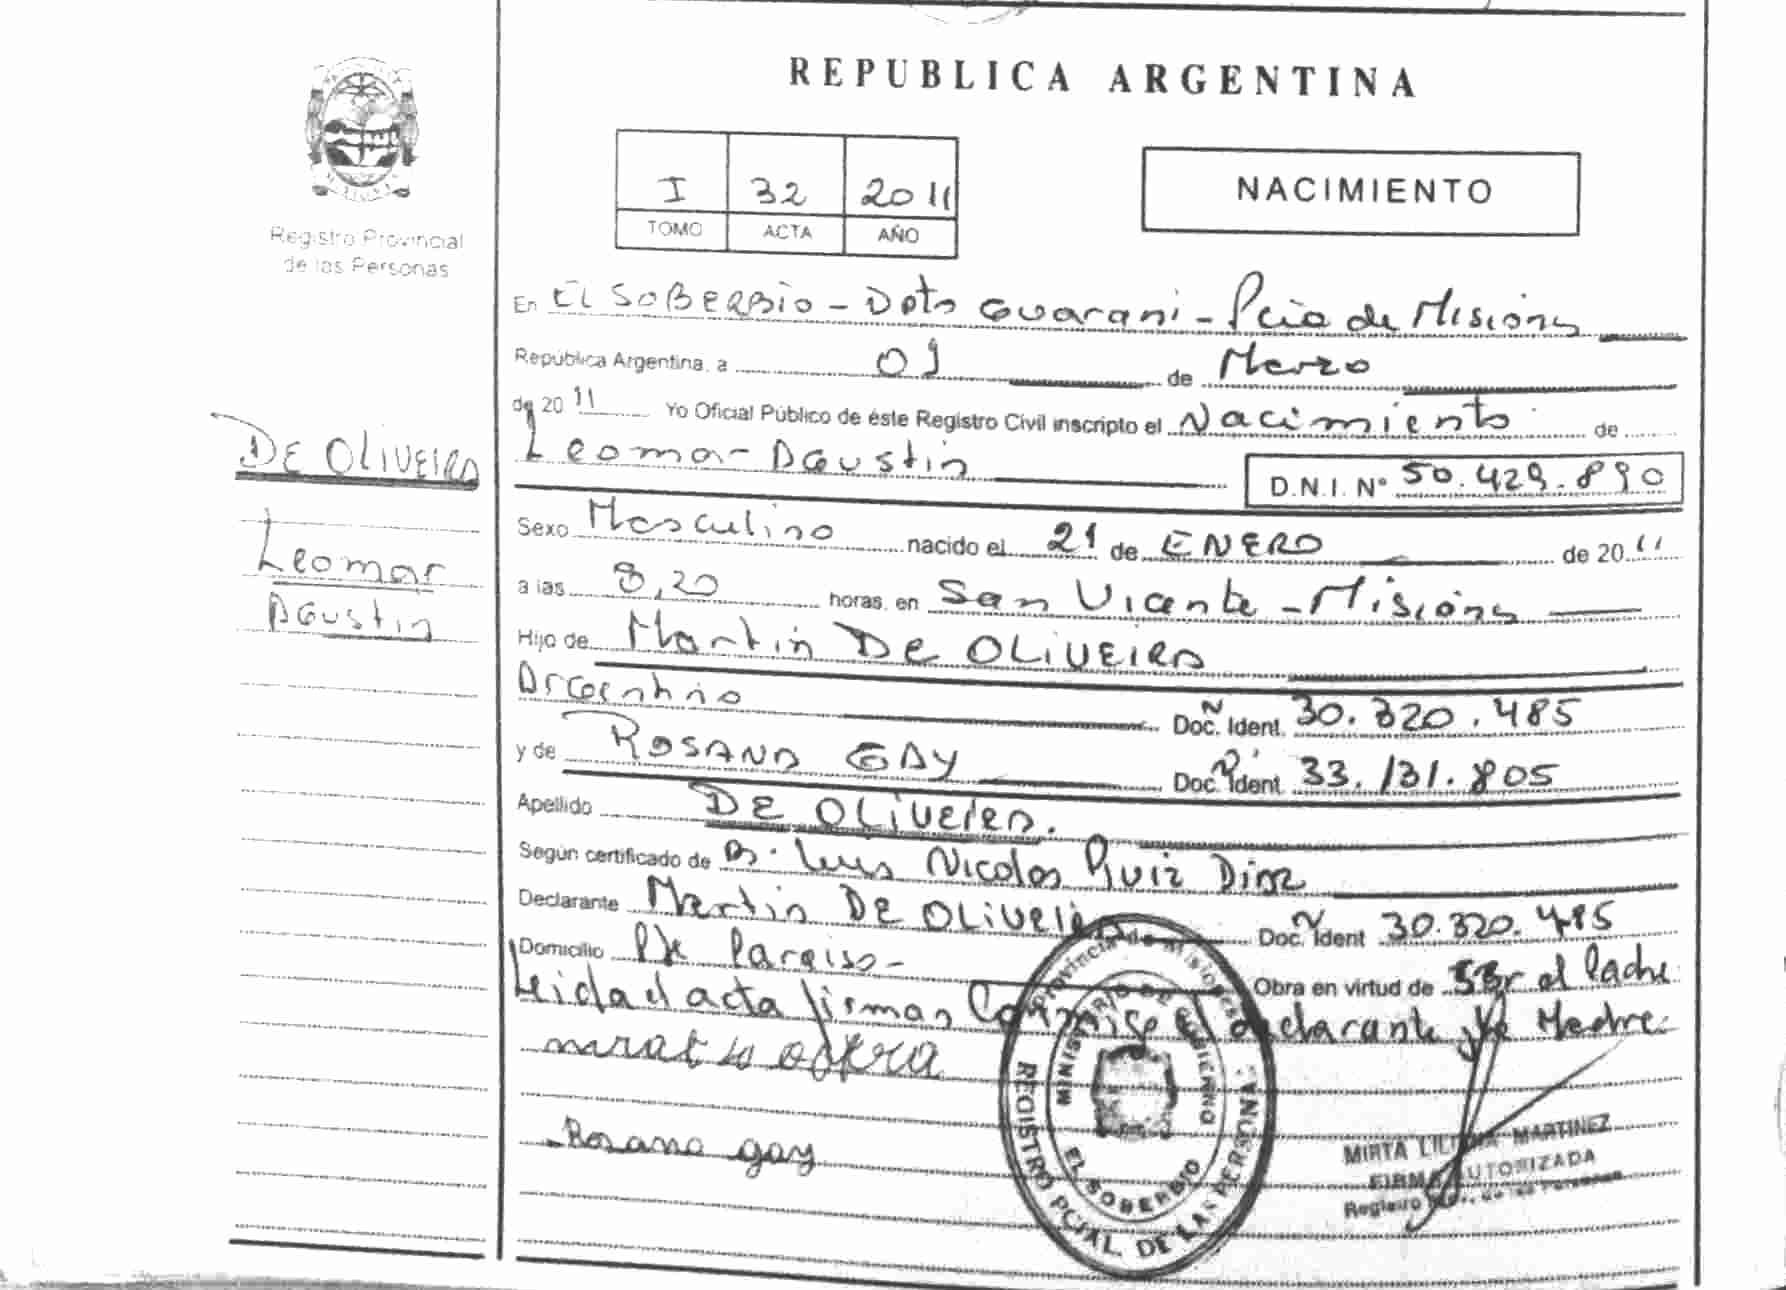 REPUBLICA ARGENTINA
I 32 2011
TOMO ACTA AÑO
NACIMIENTO
Registro Provincial
de las Personas
DE OLIVEIRA
Leomar
Agustin
En EL SOBERBIO - Dpto Guarani - Pcia de Misiones
República Argentina, a 09 de Marzo
de 2011 Yo Oficial Público de éste Registro Civil inscripto el Nacimiento de
Leomar Agustin D.N.I. Nº 50.429.890
Sexo Masculino nacido el 21 de ENERO de 2011
a las 8,20 horas, en San Vicente - Misiones
Hijo de Martin DE OLIVEIRA
Argentino Doc. Ident. 30.320.485
y de ROSANA GAY Doc. Ident. 33.131.805
Apellido DE OLIVEIRA.
Según certificado de Dr. Luis Nicolas Ruiz Diaz
Declarante Martin DE OLIVEIRA Doc. Ident 30.320.485
Domicilio Pje Paraiso - Obra en virtud de ser el Padre
Leida el acta firman Conmigo el declarante y la Madre.
Rosana gay
Provincia de Misiones
MINISTERIO DE GOBIERNO
EL SOBERBIO
REGISTRO PCIAL. DE LAS PERSONA
MIRTA LILIANA MARTINEZ
FIRMA AUTORIZADA
Registro de las Personas